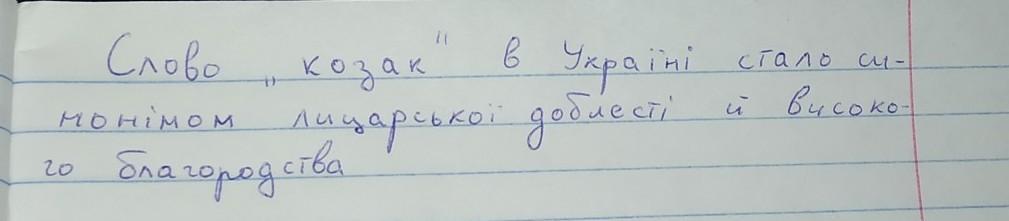 Слово „козак" в Україні стало си-
нонімом лицарської доблесті й високо-
го благородства